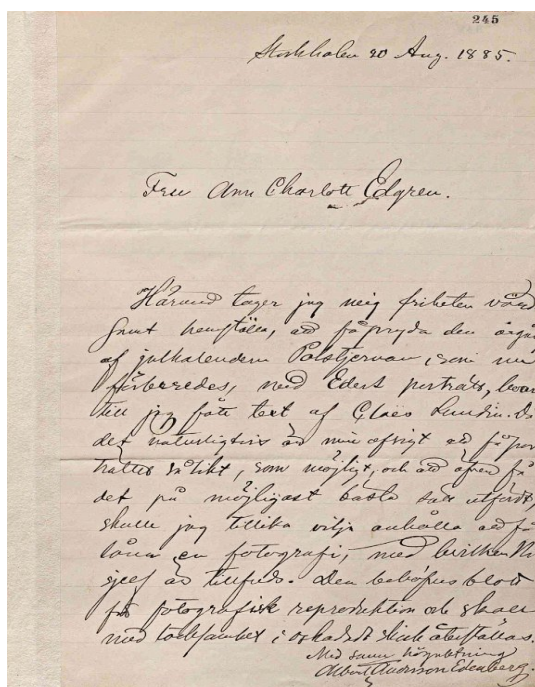 245
Stockholm 20 Aug. 1885.
Fru Ann Charlott Edgren.
Härmed tager jag mig friheten vörd
samt hemställa, att få pryda den årgån
af julkalendern Polstjernan, som nu
förberedes, med Edert porträtt, hvar
till jag fått text af Claës Lundin. Då
det naturligtvis är min afsigt att få por
trättet så likt, som möjligt, och att äfven få
det på möjligast bästa sätt utfördt,
skulle jag tillika vilja anhålla att få
låna en fotografi, med hvilken Ni
sjelf är tillfreds. Den behöfves blott
för fotografisk reproduktion och skall
med tacksamhet i oskadadt skick återställas.
Med sann högaktning
Albert Andersson Edenberg.